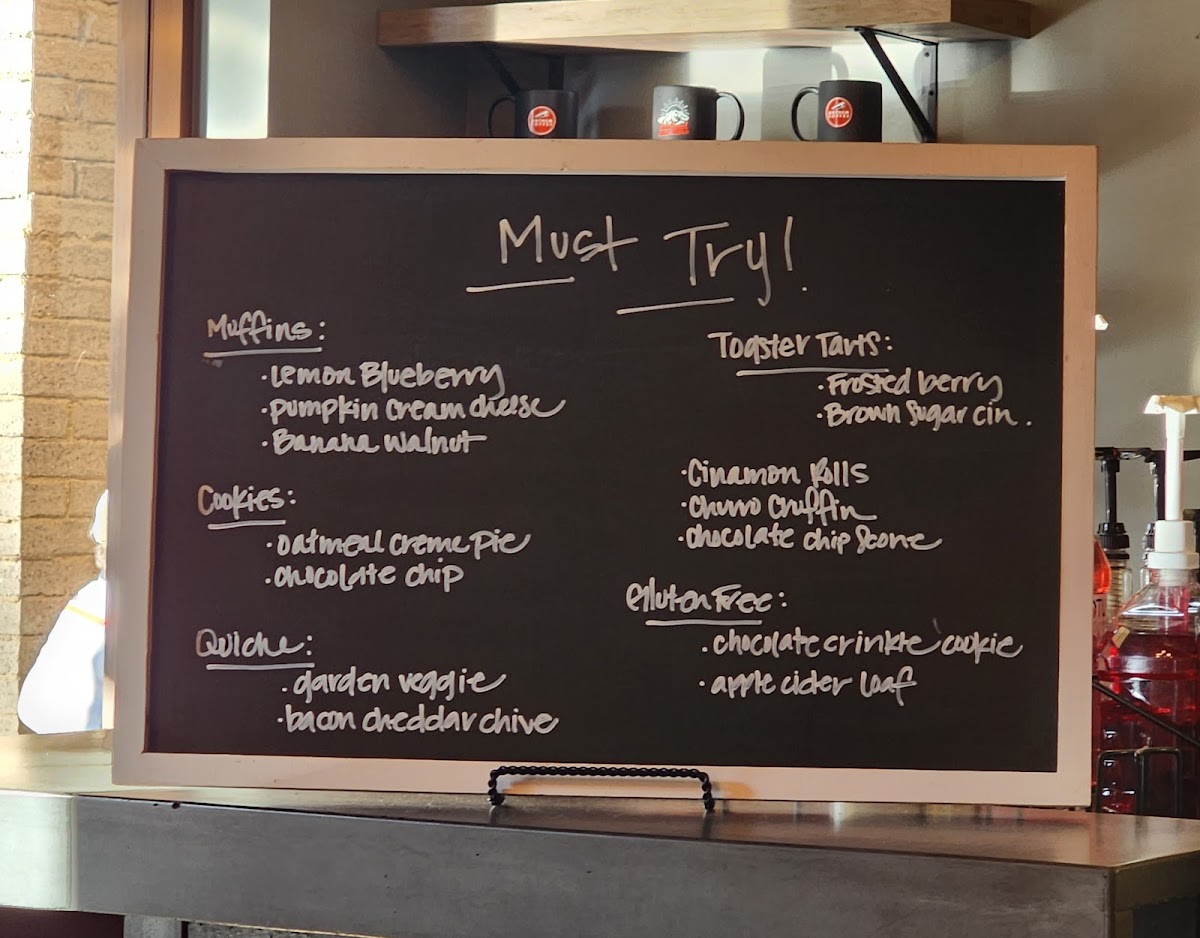 Must Try!
Muffins:
·Lemon Blueberry
·Pumpkin Cream cheese
·Banana Walnut
Cookies:
·oatmeal creme pie
·chocolate chip
Quiche:
·garden veggie
·bacon cheddar chive
Toaster Tarts:
·Frosted berry
·Brown Sugar cin.
·Cinamon Rolls
·Churro Cruffin
·chocolate chip Scone
Gluten Free:
·chocolate crinkle cookie
·apple cider loaf